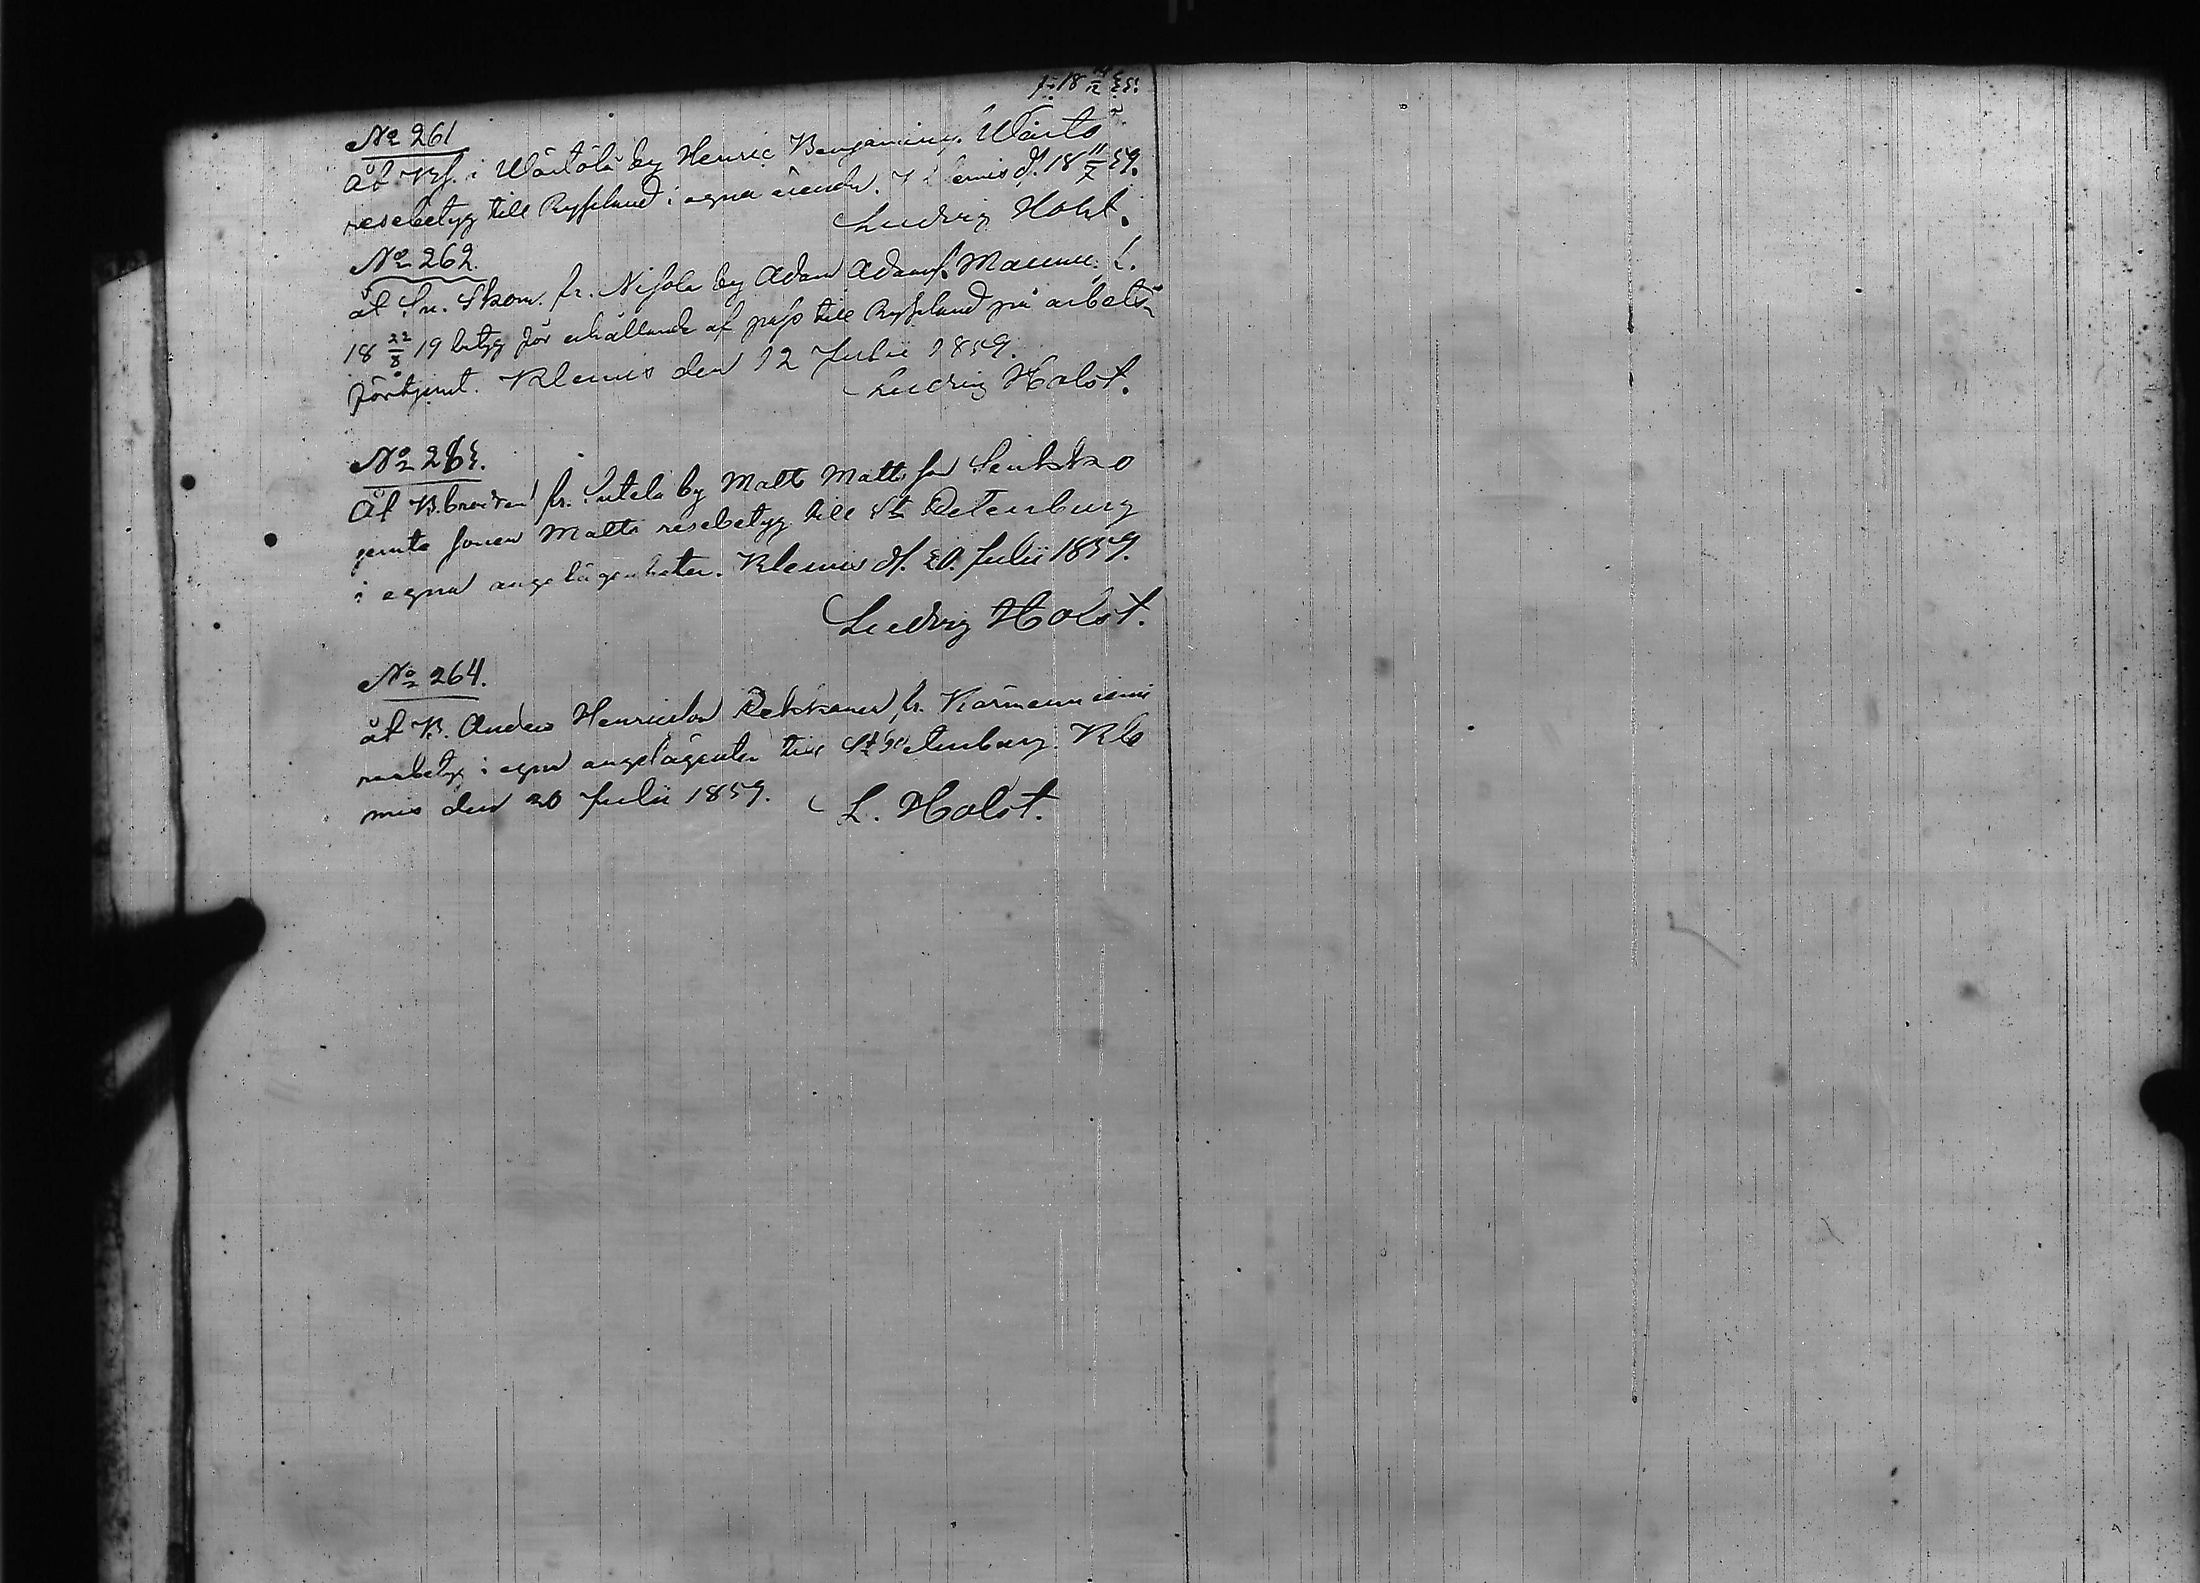 f. 18 14/12 33.
No 261
Åt Bs. i Wärtölä by Henric Benjamins. Wärtö
resebetyg till Ryssland i egna ärender. Klemis d. 18 11/7 59.
Ludvig Holst.
No 262.
åt Sn. Skom. fr. Nisola by Adam Adams. Maunu f.
18 22/8 19 betyg för erhållande af pass till Ryssland på arbets
förtjenst. Klemis den 12 Julii 1859.
Ludvig Holst.
No 263.
Åt B. fr. by Matts Mattsson
jemte sonen Matts resebetyg till St Petersburg
i egna angelägenheter. Klemis d. 20. Julii 1859.
Ludvig Holst.
No 264.
åt B. Anders Henricsson Pekkanen fr. Kärmenniemi
resebetyg i egna angelägenter till St Petersburg. Kle
mis den 20 Julii 1859. L. Holst.